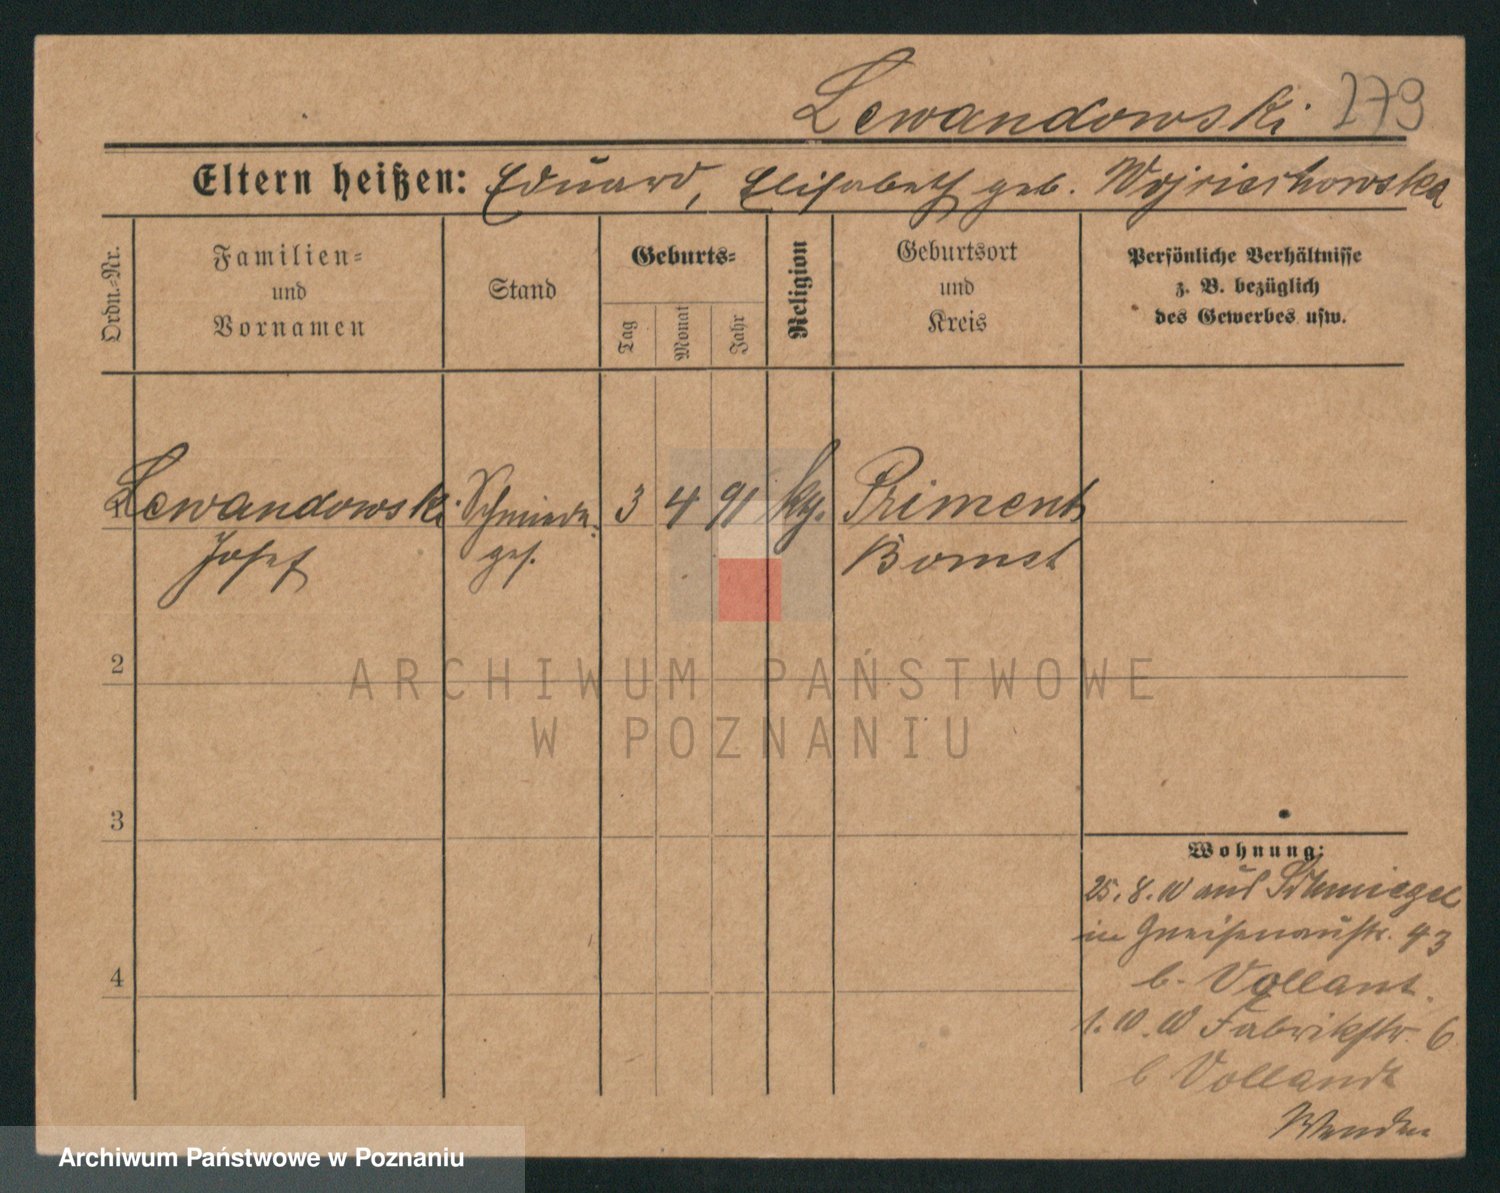 Lewandowski 279
Eltern heißen: Eduard, Elisabeth geb. Wojciechowska
Ordn.-Nr.
Familien-
und
Vornamen
Stand
Geburts-
Tag
Monat
Jahr
Religion
Geburtsort
und
Kreis
Persönliche Verhältnisse
z. B. bezüglich
des Gewerbes usw.
1 Lewandowski Schmiede- 3 4 91 kth. Priment
Josef ges. Bomst
2
ARCHIWUM PAŃSTWOWE
W POZNANIU
3
4
Wohnung:
25.8.10 aus Schmiegel
in Gneisenaustr. 43
b. Vollant.
1.10.10 Fabrikstr. 6
b Vollandt
Wenden
Archiwum Państwowe w Poznaniu